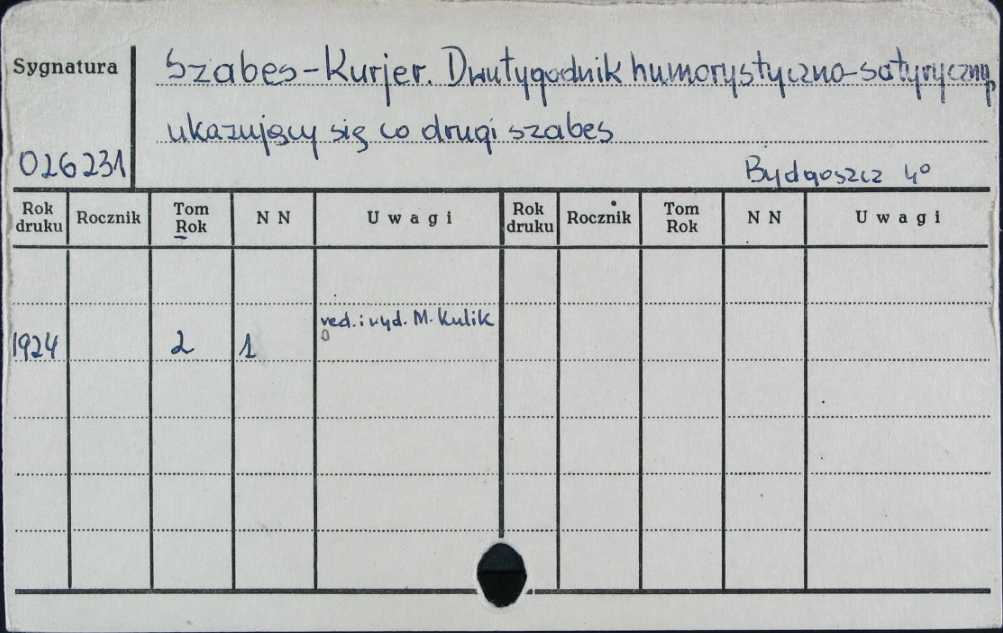 Sygnatura
Szabes-Kurjer. Dwutygodnik humorystyczno-satyryczny,
ukazujący się co drugi szabes
026231
Bydgoszcz 4°
Rok druku Rocznik Tom Rok N N U w a g i Rok druku Rocznik Tom Rok N N U w a g i
red. i wyd. M. Kulik
1924 2 1